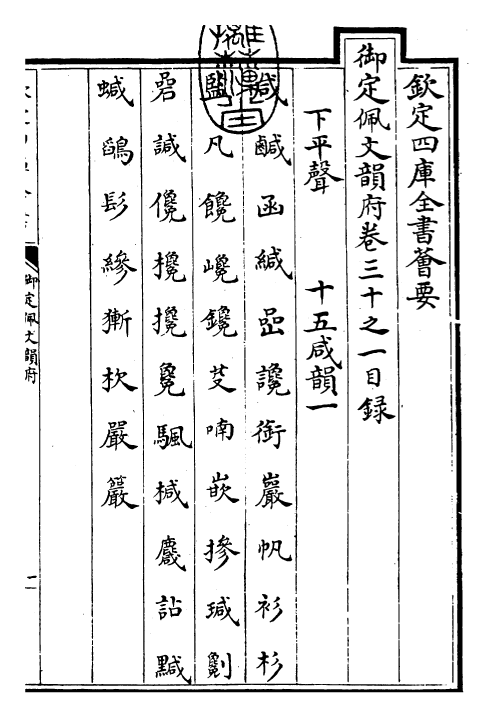 欽定四庫全書薈要
御定佩文韻府卷三十之一目録
下平聲 十五咸韻一
咸 鹹 函 緘 嵒 讒 銜 巖 帆 衫 杉
監 凡 饞 巉 鑱 芟 喃 嵌 摻 瑊 劖
碞 諴 儳 攙 欃 毚 颿 椷 麙 詀 黬
蝛 鵮 髟 縿 獑 杴 嚴
御定佩文韻府
一